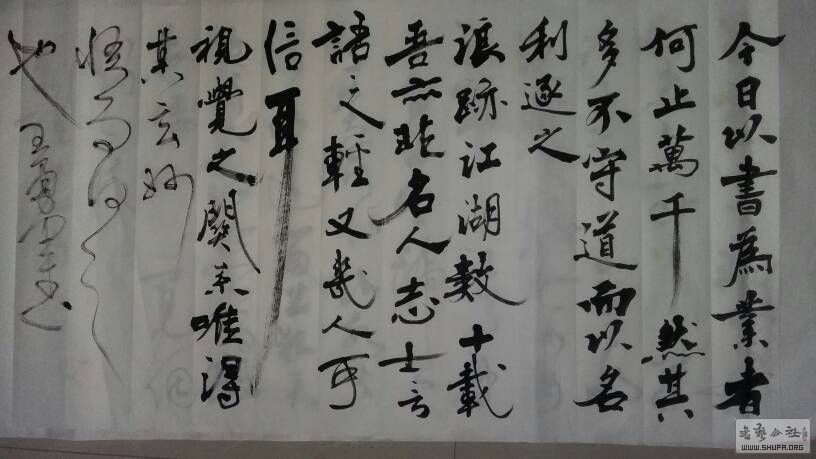 今日以書為業者
何止萬千然其
多不守道而以名
利逐之
浪跡江湖數十載
吾亦非名人志士言
語之輕又幾人可
信耳
視覺之闋亦唯得
其玄妙
悟而得之
也
書藝公社
WWW.SHUFA.ORG